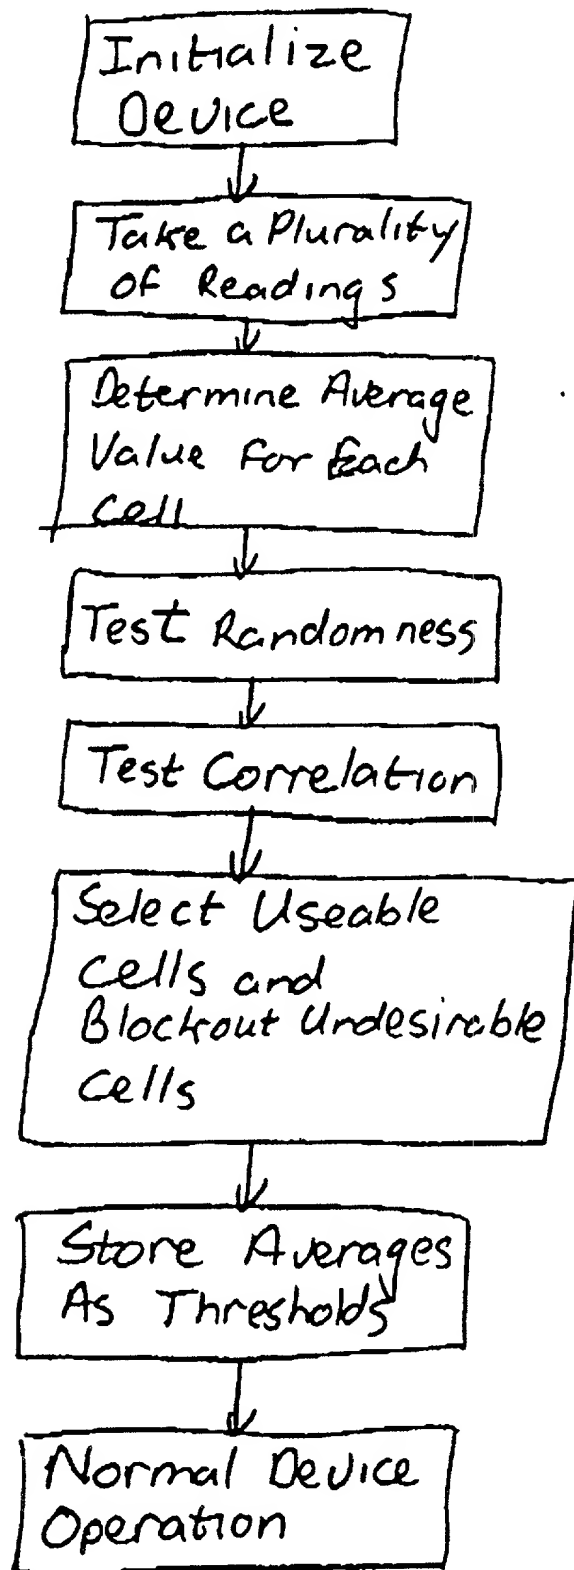 Initialize
Device
Take a Plurality
of Readings
Determine Average
Value for Each
Cell
Test Randomness
Test Correlation
Select Useable
Cells and
Blockout Undesirable
Cells
Store Averages
As Thresholds
Normal Device
Operation